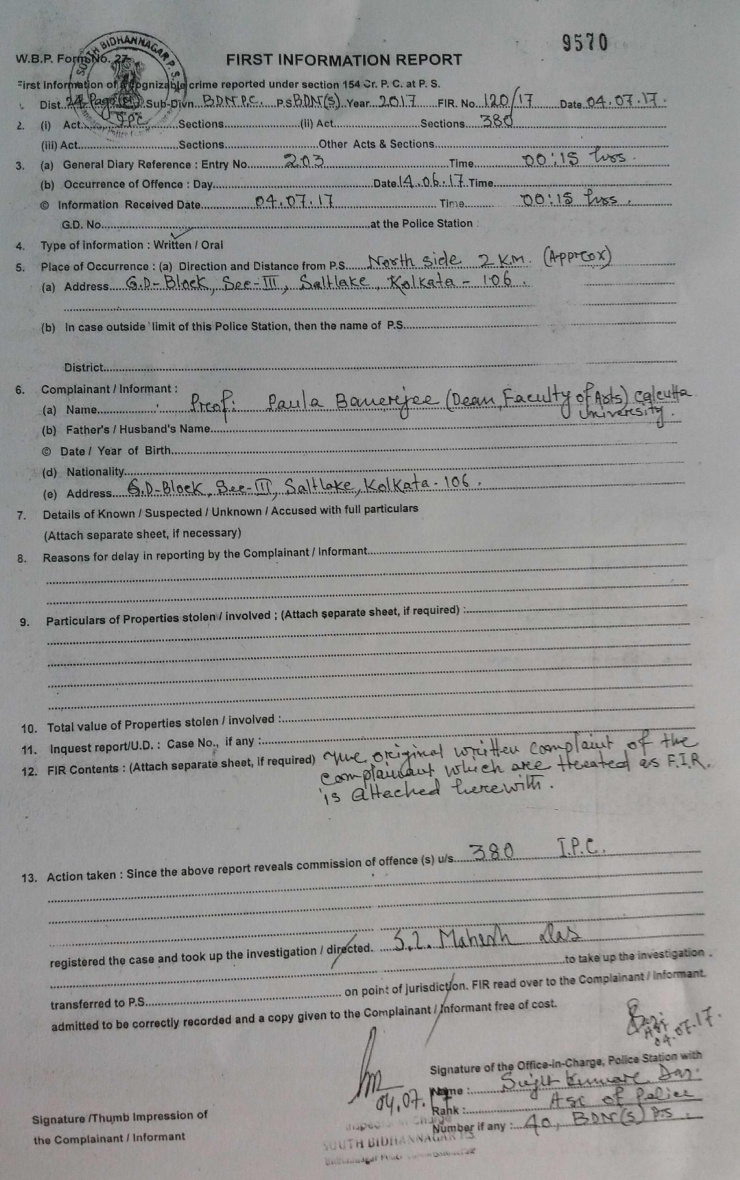 9570
SOUTH BIDHANNAGAR P.S.
W.B.P. Form No. 27
FIRST INFORMATION REPORT
First Information of Cognizable crime reported under section 154 Cr. P. C. at P. S.
1. Dist. 24 Pgs (N) Sub-Divn. BDN P.C. P.S BDN(S). Year 2017 FIR. No. 120/17 Date 04.07.17.
2. (i) Act IPC Sections (ii) Act Sections 380
(iii) Act Sections Other Acts & Sections
3. (a) General Diary Reference : Entry No. 203 Time 00:15 hrs.
(b) Occurrence of Offence : Day Date 14.06.17 Time
© Information Received Date 04.07.17 Time 00:15 hrs.
G.D. No. at the Police Station
4. Type of information : Written / Oral
5. Place of Occurrence : (a) Direction and Distance from P.S. North side 2 KM. (Approx)
(a) Address G.D-Block, Sec-III, Saltlake, Kolkata - 106.
(b) In case outside limit of this Police Station, then the name of P.S.
District
6. Complainant / Informant :
(a) Name Prof: Paula Banerjee (Dean, Faculty of Arts) Calcutta University.
(b) Father's / Husband's Name
© Date / Year of Birth
(d) Nationality
(e) Address G.D-Block, Sec-III, Saltlake, Kolkata - 106.
7. Details of Known / Suspected / Unknown / Accused with full particulars
(Attach separate sheet, if necessary)
8. Reasons for delay in reporting by the Complainant / Informant
9. Particulars of Properties stolen / involved ; (Attach separate sheet, if required) :
10. Total value of Properties stolen / involved :
11. Inquest report/U.D. : Case No., if any :
12. FIR Contents : (Attach separate sheet, if required) The original written complaint of the
complainant which are treated as F.I.R.
is attached herewith.
13. Action taken : Since the above report reveals commission of offence (s) u/s 380 I.P.C.
registered the case and took up the investigation / directed. S.I. Mahesh Das
to take up the investigation
transferred to P.S. on point of jurisdiction. FIR read over to the Complainant / Informant.
admitted to be correctly recorded and a copy given to the Complainant / Informant free of cost.
ASI
04.07.17.
Signature of the Office-in-Charge, Police Station with
04.07.17
Name : Sujit Kumar Das.
Rank : ASI of Police
Number if any : 40, BDN(S) P.S.
SOUTH BIDHANNAGAR P.S.
Signature /Thumb Impression of
the Complainant / Informant